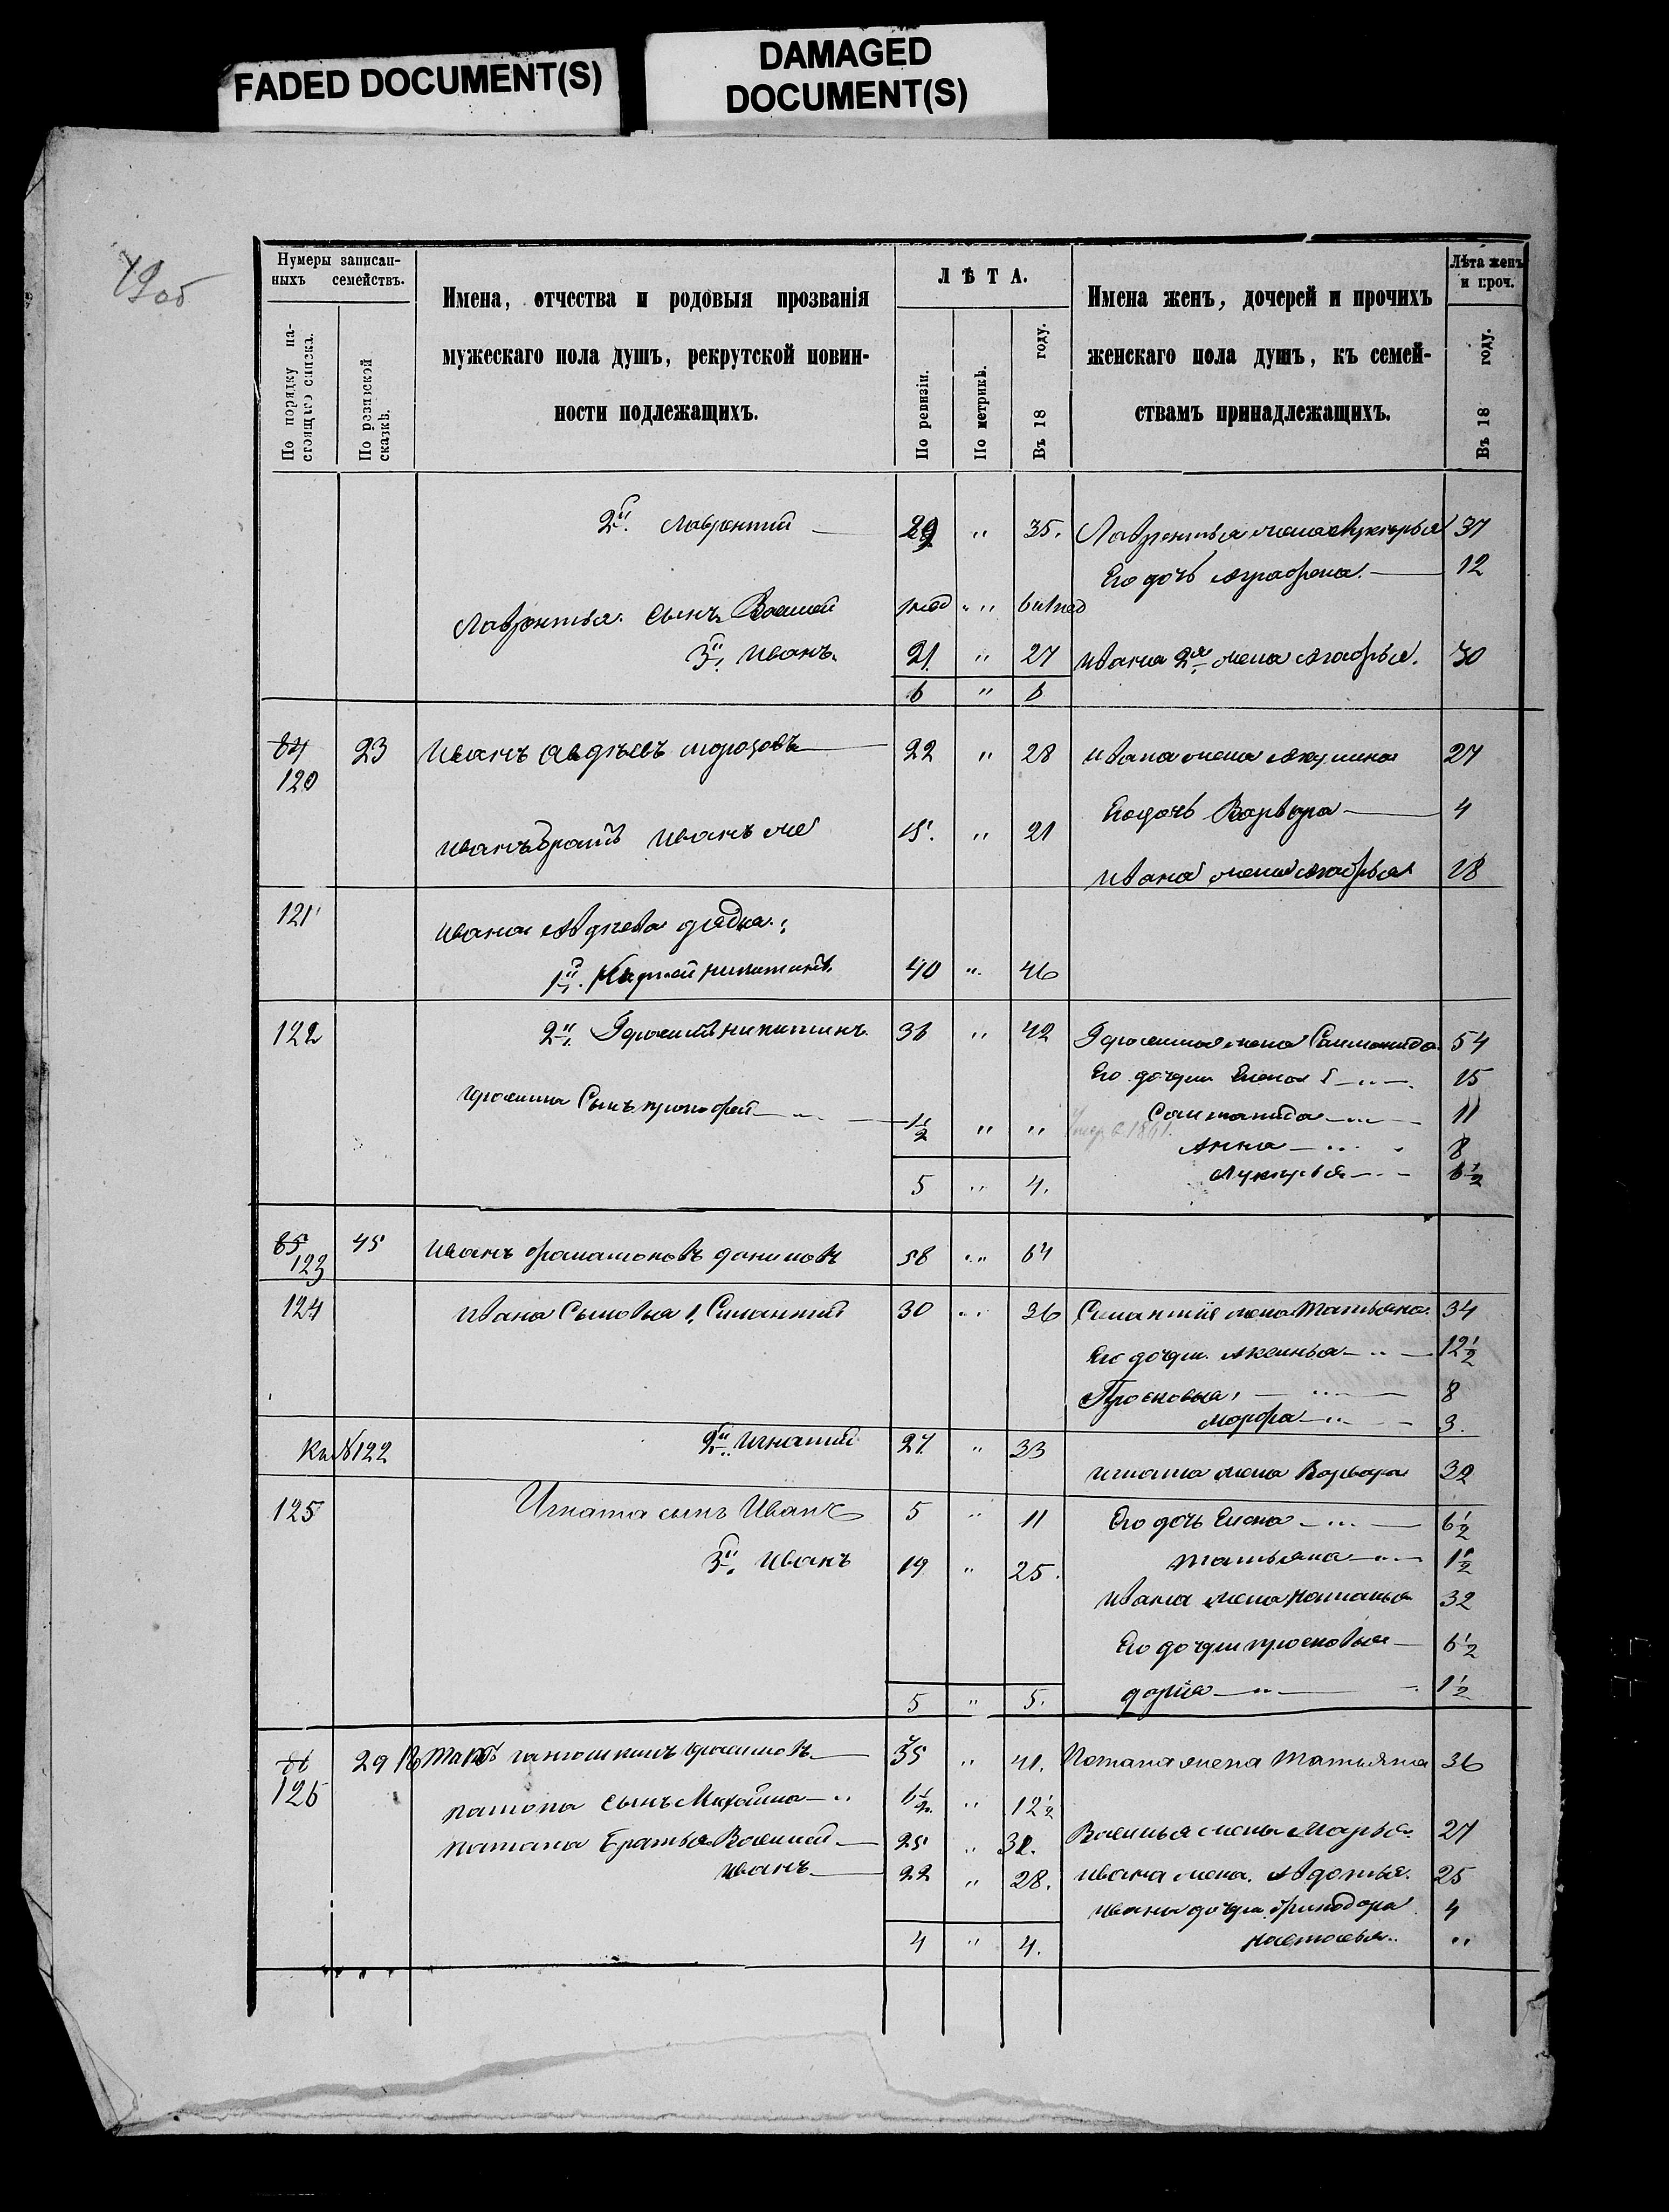 FADED DOCUMENT(S)
DAMAGED
DOCUMENT(S)
Нумеры записан-
ныхъ семействъ.
По порядку на-
стоящаго списка.
По ревизской
сказкѣ.
Имена, отчества и родовыя прозванія
мужескаго пола душъ, рекрутской повин-
ности подлежащихъ.
ЛѢТА.
По ревизіи.
По метрикѣ.
Въ 18 году.
Имена женъ, дочерей и прочихъ
женскаго пола душъ, къ семей-
ствамъ принадлежащихъ.
Лѣта женъ
и проч.
Въ 18 году.
2й. Лаврентий — 29 " 35. Лаврентья жена Лукерья 37
Его дочь Аграфена. — 12
Лаврентья сынъ Василей
3й. Иванъ. 21. " 27 Ивана 2я жена Агафья. 30
6 " 6
84 23 Иванъ Авдѣевъ Морозовъ — 22 " 28 Ивана жена Акулина 27
120
Его дочь Варвара — 4
Иванъ братъ Иванъ же 15. " 21
Ивана жена Агафья 18
121 Ивана Авдѣева дядья:
1й. никитинъ 40 " 46
122 2й. никитинъ. 36 " 42 жена 54
Его дочери Елена 1 — " — 15
Сынъ прокофей — " — 1/2 " " — " — 11
Умер в 1861.
Анна — " 8
Лукерья — " — 6 1/2
5 " 4.
85 45 Иванъ данилов 58 " 64
123
124 Ивана Сыновья 1. 30 " 36 жена Татьяна. 34
Его дочери. Аксинья — " — 12 1/2
Просковья, — " — 8
Марфа — " — 3.
Къ №122 2й. Игнатий 27. " 33
Игната жена Варвара 32
125 Игната сынъ Иванъ 5 " 11 Его дочь Елена — " — 6 1/2
3й. Иванъ 19 " 25. Татьяна — " — 1 1/2
Ивана жена Наталья 32
Его дочери просковья — 6 1/2
5 " 5. дарья — " — 1 1/2
86 29 35 " 41. Потапа жена Татьяна 36
126
потапа сынъ Михайла — " 6 1/2 " 12 1/2
потапа братья Василий — 25 " 32. Василья жена Марья. 27
иванъ — 22 " 28. ивана жена. Авдотья. 25
ивана дочери 4
4 " 4. настасья.. "